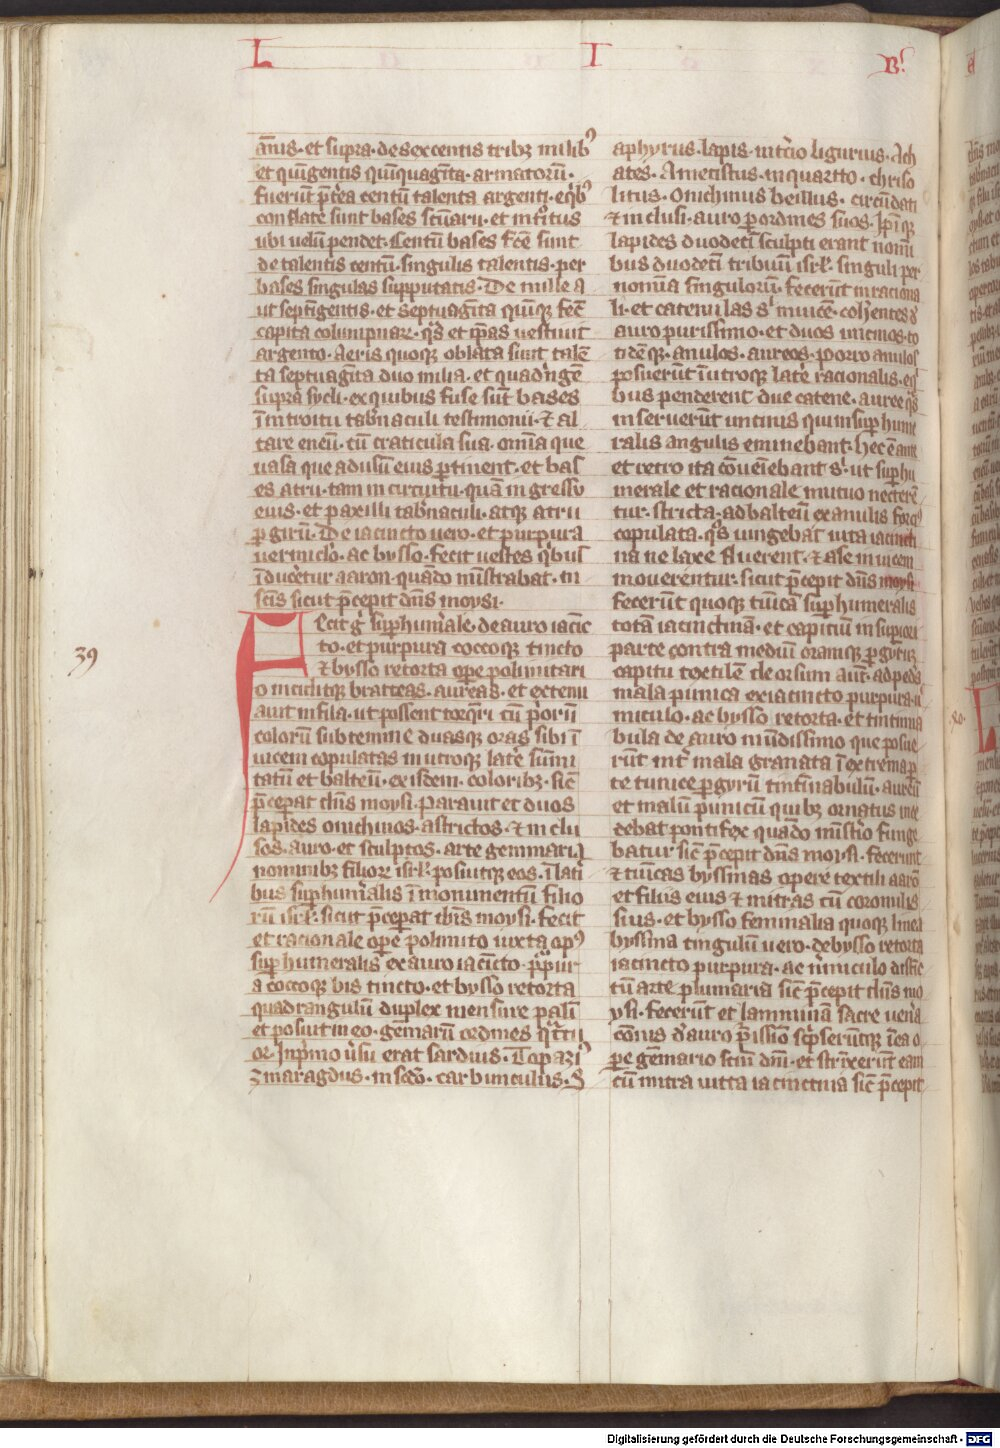 L I Bˢ
a᷑nis · et supra · de sexcentis tribꝫ milibꝰ
et qui᷑ngentis qui᷑nquagi᷑ta · armatoru᷑ ·
fueru᷑t p᷑t᷑ea centu᷑ talenta argenti · e q᷑bꝰ
conflate sunt bases sc᷑uarii · et int᷑itus
ubi uelu᷑ pendet · Centu᷑ bases fc᷑e sunt
de talentis centu᷑ · singulis talentis · per
bases singulas supputatis · De mille a
ut septi᷑gentis · et septuagi᷑ta qui᷑qꝫ fec᷑
capita columpnaꝝ · q᷑s et ip᷑as uestiuit
argento · Aeris quoqꝫ oblata sunt tale᷑
ta septuagi᷑ta duo milia · et quadri᷑nge᷑
supra sycli · ex quibus fuse su᷑t bases
i᷑ introitu tab᷑naculi testimonii · ⁊ al
tare eneu᷑ · cu᷑ craticula sua · om᷑ia que
uasa que ad usu᷑ eius ꝑtinent · et bas
es atrii · tam in circuitu · qua᷑ in gressu
eius · et paxilli tab᷑naculi · atqꝫ atrii
ꝑ giru᷑ · De iacincto uero · et purpura
uermic᷑lo · ac bysso · fecit uestes q᷑bus
i᷑duc᷑etur aaron · qua᷑do mi᷑strabat · in
sc᷑is sicut p᷑cepit dn᷑s moysi ·
39
Fecit g᷑ suꝑhum᷑ale · de auro iacic᷑
to · et purpura coccoqꝫ tincto
⁊ bysso retorta oꝑe polimitari
o inciditqꝫ bratteas · aureas · et extenu
auit in fila · ut possent torq᷑ri cu᷑ p᷑oru᷑
coloru᷑ subtemine duasqꝫ oras sibi i᷑
uicem copulatas in utroqꝫ lat᷑e su᷑mi
tatu᷑ et balteu᷑ · ex isdem · coloribꝫ · sic᷑
p᷑cepat dn᷑s moysi · Parauit et duos
lapides onichinos · astrictos · ⁊ inclu
sos · auro · et sculptos · arte gemmaria
nominibꝫ filioꝝ isrl᷑ · posuitqꝫ eos · i᷑ lati
bus suꝑhum᷑alis i᷑ monumentu᷑ filio
ru᷑ isrl᷑ · sicut p᷑cepat dn᷑s moysi · fecit
et racionale oꝑe polimito iuxta opꝰ
suꝑhumeralis ex auro iaci᷑cto · p᷑pur
a coccoqꝫ bis tincto · et bysso retorta
quadrangulu᷑ duplex mensure palmi᷑
et posuit in eo · ge᷑maru᷑ ordines q᷑ttu
or · In p᷑mo u᷑su erat sardius · Topaziꝰ
zmaragdus · in sc᷑do · carbunculus · S
aphyrus · lapis · in t᷑cio ligurius · Ach
ates · Ametistus · in quartto · chriso
litus · Onichinus berillus · circu᷑dati
⁊ inclusi · auro ꝑ ordines suos · Ip᷑iqꝫ
lapides duodeci᷑ sculpti erant no᷑mi
bus duodeci᷑ tribuu᷑ isrl᷑ · singuli per
nomi᷑a singuloru᷑ · feceru᷑t in raciona
li · et catenulas s᷑ inuice᷑ · coh᷑entes d᷑
auro purissimo · et duos uncinos · to
tide᷑qꝫ · anulos · aureos · Porro anulos
posueru᷑t i᷑ utroqꝫ lat᷑e racionalis · e q᷑
bus penderent due catene · auree q᷑s
inseruerunt uncinis qui in suꝑhume
ralis angulis eminebant · Hec e᷑ ante
et retro ita co᷑uenie᷑bant s᷑ · ut suꝑhu
merale et racionale mutuo nectere᷑
tur · stricta · ad balteu᷑ ex anulis forcꝰ
copulata · q᷑s iungebat uita iacincti
na ne laxe fluerent · ⁊ a se inuicem
mouerentur · sicut p᷑cepit dn᷑s moysi
fecerunt quoqꝫ tuni᷑ca᷑ suꝑhumeralis
tota᷑ iacinctina᷑ · et capiciu᷑ in suꝑiori
parte contra mediu᷑ oramqꝫ ꝑ gyruꝫ
capitii textile᷑ deorsum aut᷑ · ad pedes
mala punica ex iacincto purpura · u᷑
miculo · ac bysso retorta · et tintinna
bula de auro mu᷑dissimo que posue
ru᷑t int᷑ mala granata i᷑ extrema ꝑ
te tunice ꝑ gyru᷑ tinti᷑nabulu᷑ · aureu᷑
et malu᷑ punicu᷑ quibꝫ ornatus ince
debat pontifex qua᷑do mi᷑st᷑io funge
batur sic᷑ p᷑cepit dn᷑s moysi · fecerunt
⁊ tuni᷑cas byssinas opere textili aaro᷑
et filiis eius ⁊ mitras cu᷑ coronulis
suis · et bysso feminalia quoqꝫ linea
byssina cingulu᷑ uero · de bysso retorta
iacincto purpura · ac u᷑miculo distic᷑
tu᷑ arte plumaria sic᷑ p᷑cepit dn᷑s mo
ysi · feceru᷑t et lammina᷑ sacre uen᷑a
co᷑nis d᷑ auro p᷑issi᷑o sc᷑pseru᷑tqꝫ i᷑ ea o
ꝑe ge᷑mario sc᷑m dn᷑i · et stri᷑xeru᷑t eam
cu᷑ mitra uitta iacinctina sic᷑ p᷑cepit
Digitalisierung gefördert durch die Deutsche Forschungsgemeinschaft - DFG